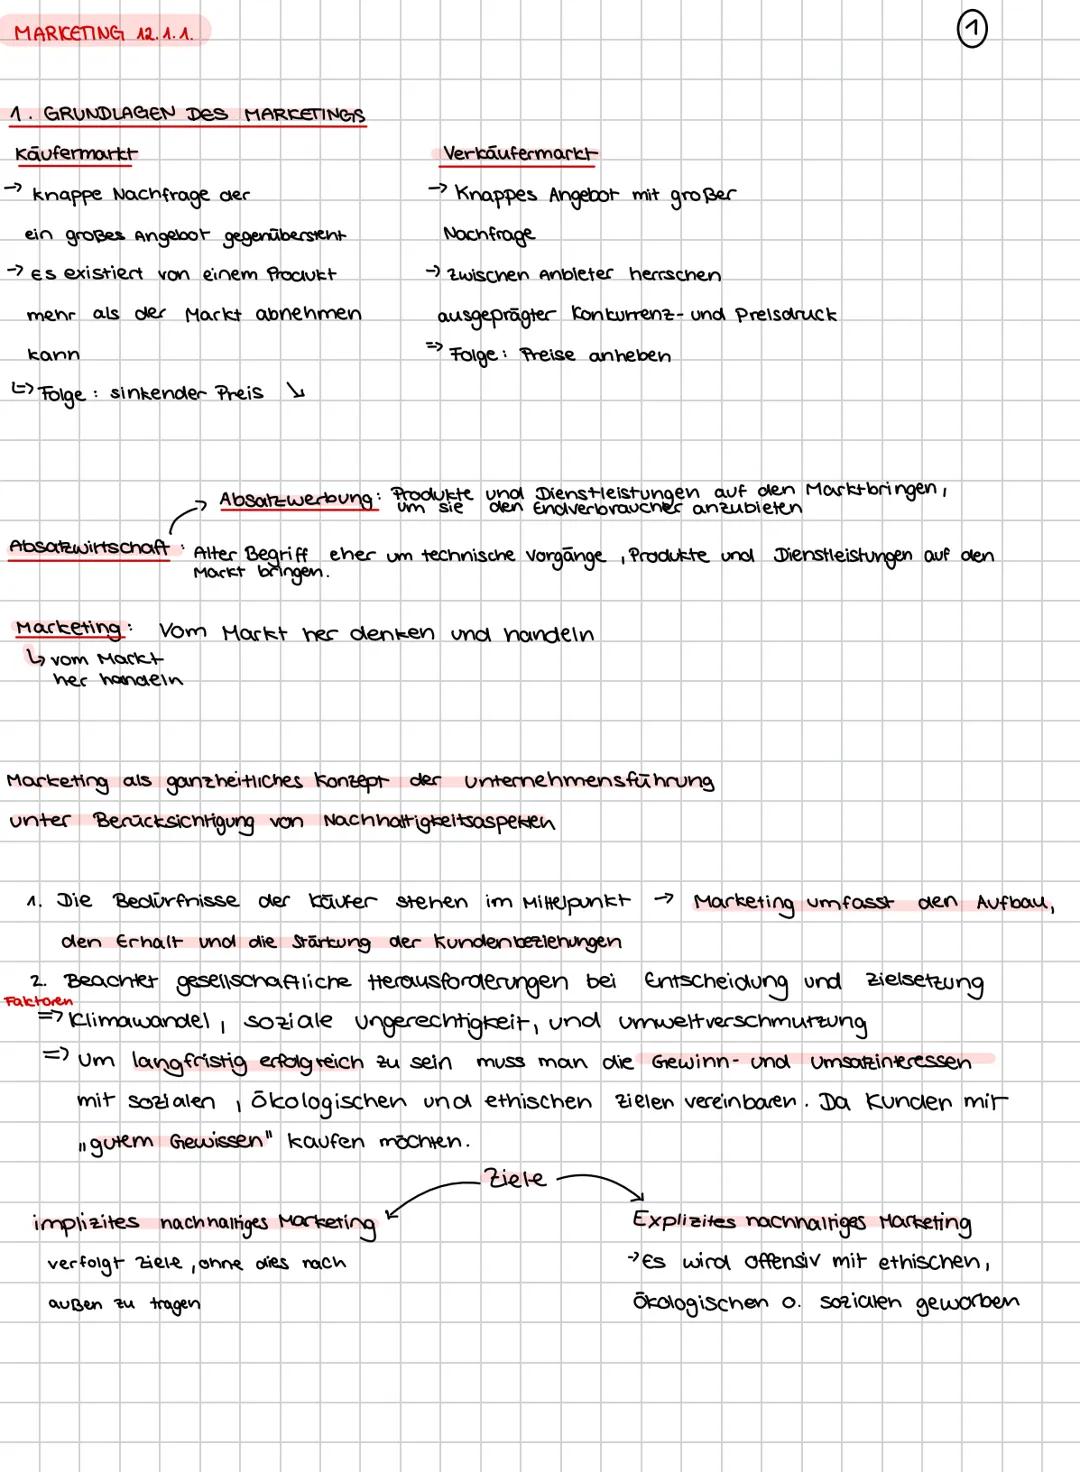 MARKETING 12.1.1.
1
1. GRUNDLAGEN DES MARKETINGS
Käufermarkt
→ knappe Nachfrage der
ein großes Angebot gegenübersteht
→ Es existiert von einem Produkt
mehr als der Markt abnehmen
kann
↳ Folge: sinkender Preis ↘
Verkäufermarkt
→ Knappes Angebot mit großer
Nachfrage
→ zwischen Anbieter herrschen
ausgeprägter Konkurrenz- und Preisdruck
⇒ Folge: Preise anheben
→ Absatzwerbung: Produkte und Dienstleistungen auf den Marktbringen,
um sie den Endverbraucher anzubieten
Absatzwirtschaft: Alter Begriff eher um technische Vorgänge, Produkte und Dienstleistungen auf den
Markt bringen.
Marketing: Vom Markt her denken und handeln
↳ vom Markt
her handeln
Marketing als ganzheitliches Konzept der Unternehmensführung
unter Berücksichtigung von Nachhaltigkeitsaspekten
1. Die Bedürfnisse der Käufer stehen im Mittelpunkt → Marketing umfasst den Aufbau,
den Erhalt und die Stärkung der Kundenbeziehungen
2. Beachtet gesellschaftliche Herausforderungen bei Entscheidung und Zielsetzung
Faktoren
⇒ Klimawandel, soziale Ungerechtigkeit, und Umweltverschmutzung
⇒ Um langfristig erfolgreich zu sein muss man die Gewinn- und Umsatzinteressen
mit sozialen, ökologischen und ethischen Zielen vereinbaren. Da Kunden mit
„gutem Gewissen" kaufen möchten.
Ziele
implizites nachhaltiges Marketing
verfolgt Ziele, ohne dies nach
außen zu tragen
Explizites nachhaltiges Marketing
→ Es wird offensiv mit ethischen,
Ökologischen o. sozialen geworben